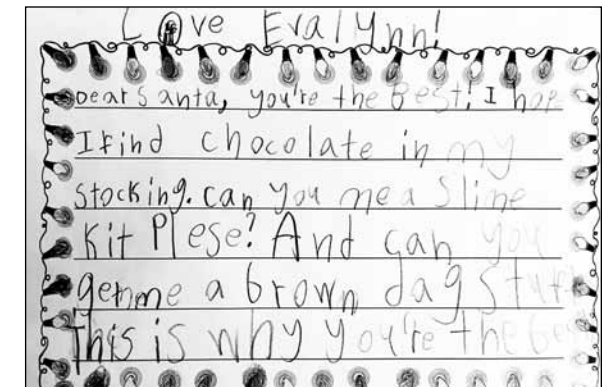 Love Evalynn!
Dear Santa, you're the Best! I hop
I find chocolate in my
stocking. can you me a Slime
Kit Plese? And can you
gemme a brown dag Stuf
This is why you're the Bes